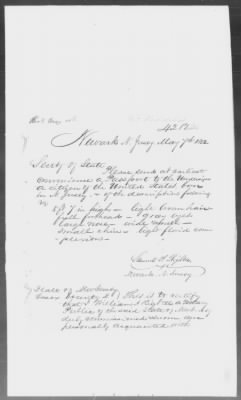 Newark N. Jersey May 7th
Secty of State
Please send at earliest
convenience a Passport to the undersign
a citizen of the United States born
in N. Jersey - of the description following
5ft 7 in high - light brown hair
full forehead - gray eyes
large nose - wide mouth
small chin - light florid com
plexion -
Samuel
Newark N. Jersey
State of New Jersey
Essex County SS This is to certify
that I William a Notary
Public of said State of N.J. by
duly commissioned sworn am
personally acquainted with